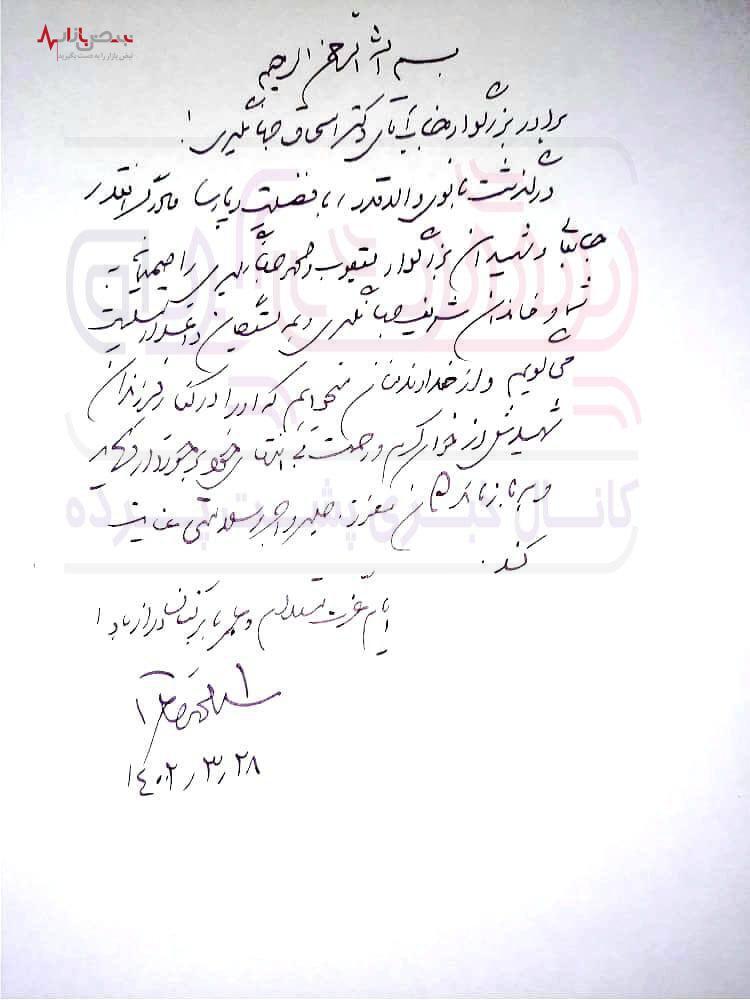 نبض بازار
نبض بازار را به دست بگیرید
بسم الله الرحمن الرحیم
برادر بزرگوار جناب آقای دکتر اسحاق جهانگیری!
درگذشت بانوی والاقدر، با فضیلت و پارسا مادر گرانقدر
جنابعالی و شهیدان بزرگوار یعقوب و محمد جهانگیری را صمیمانه به
شما و خاندان شریف جهانگیری و همه بستگان داغدار تسلیت
می‌گویم و از خداوند منان می‌خواهم که او را در کنار فرزندان
شهیدش از خوان کرم و رحمت بی انتهای خود برخوردار نماید
و به بازماندگان معزز، صبر و اجر و سلامتی عنایت
کند.
ایام عزت مستدام و عمر با برکتتان دراز باد!
۱۴۰۲/۳/۲۸
کانال خبری پشت پرده